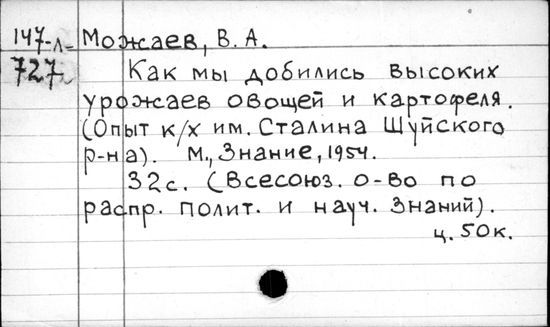 147-л- Можаев, В. А.
727. Как мы добились высоких
урожаев овощей и картофеля.
(Опыт к/х им. Сталина Шуйского
р-на). М., Знание, 1954.
32с. (Всесоюз. о-во по
распр. полит. и науч. Знаний).
ц. 50к.